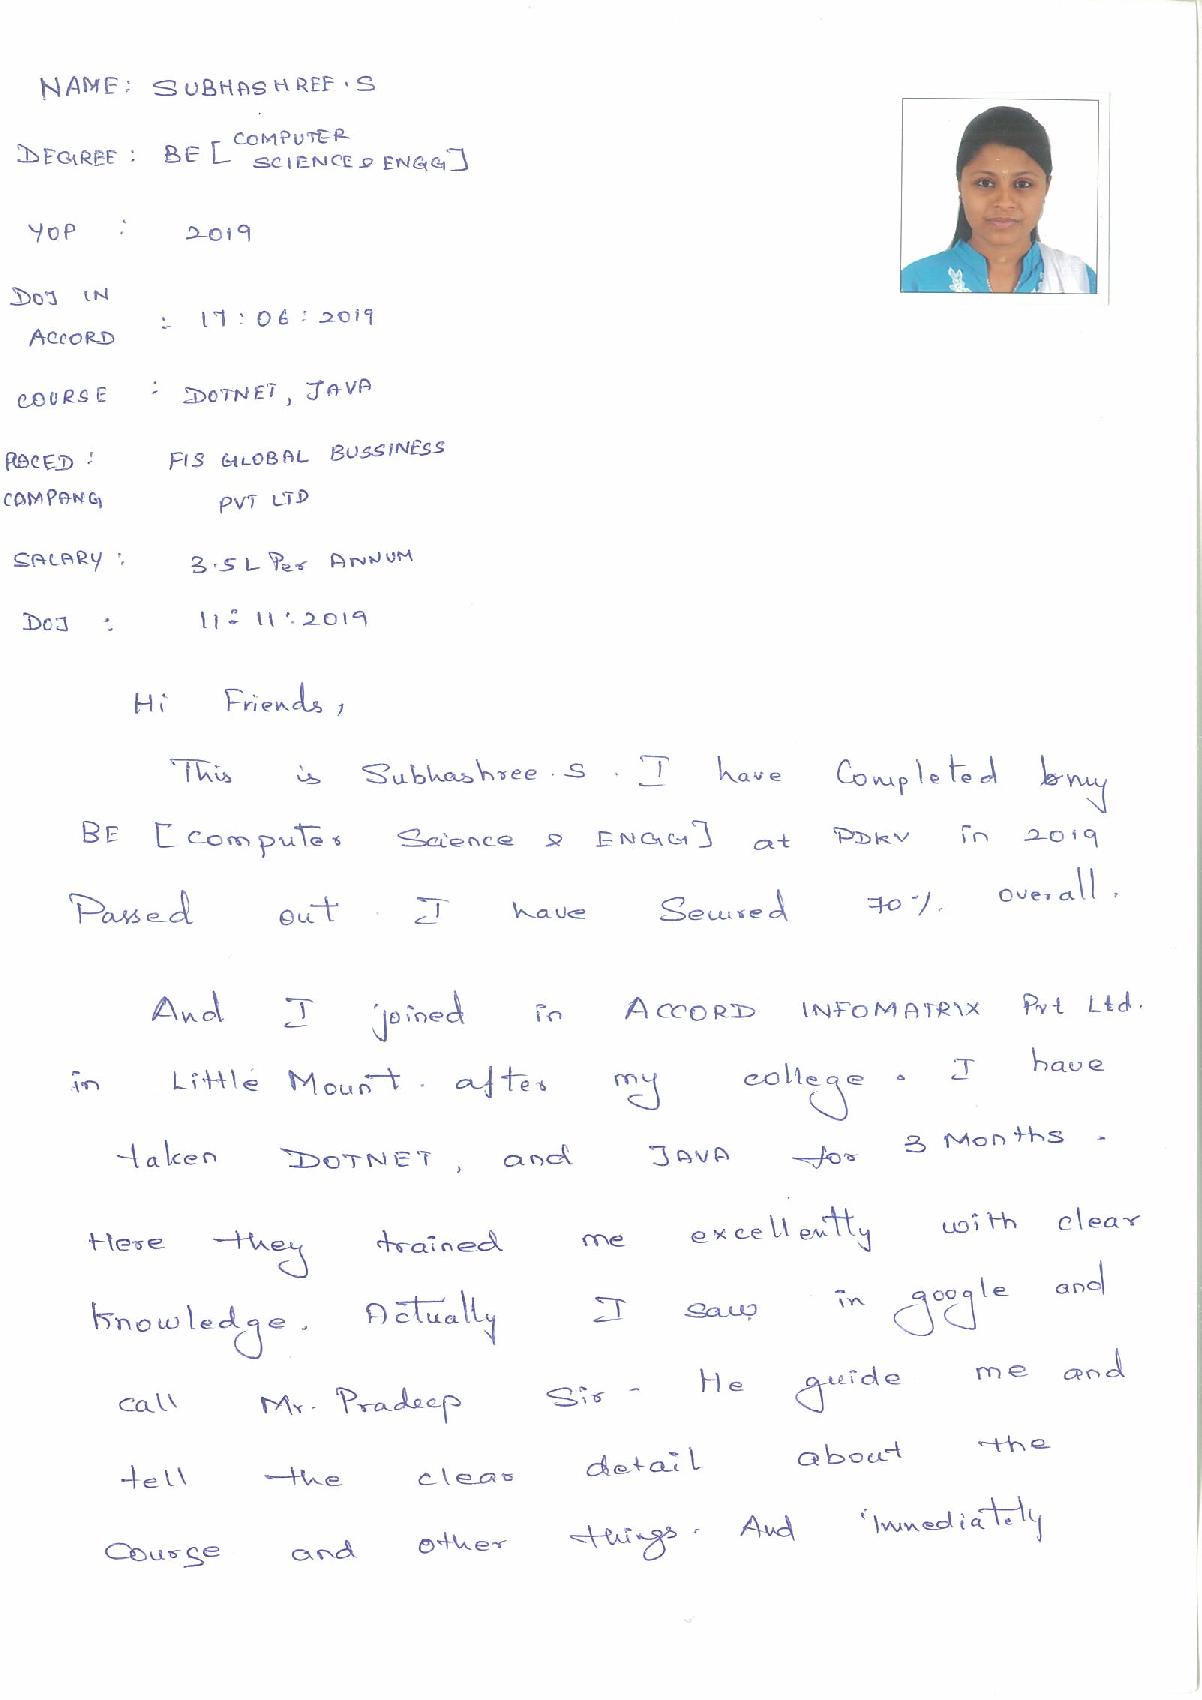 NAME: SUBHASHREE.S
DEGREE: BE [COMPUTER
SCIENCE & ENGG]
YOP : 2019
DOJ IN
ACCORD : 17:06:2019
COURSE : DOTNET, JAVA
PLACED: FIS GLOBAL BUSSINESS
COMPANG PVT LTD
SALARY: 3.5L Per ANNUM
DOJ : 11:11:2019
Hi Friends,
This is Subhashree.S. I have Completed my
BE [Computer Science & ENGG] at PDKV in 2019
Passed out. I have Secured 70%. overall.
And I joined in ACCORD INFOMATRIX Pvt Ltd.
in Little Mount. after my college. I have
taken DOTNET, and JAVA for 3 Months.
Here they trained me excellently with clear
Knowledge. Actually I saw in google and
call Mr. Pradeep Sir - He guide me and
tell the clear detail about the
Course and other things. And Immediately